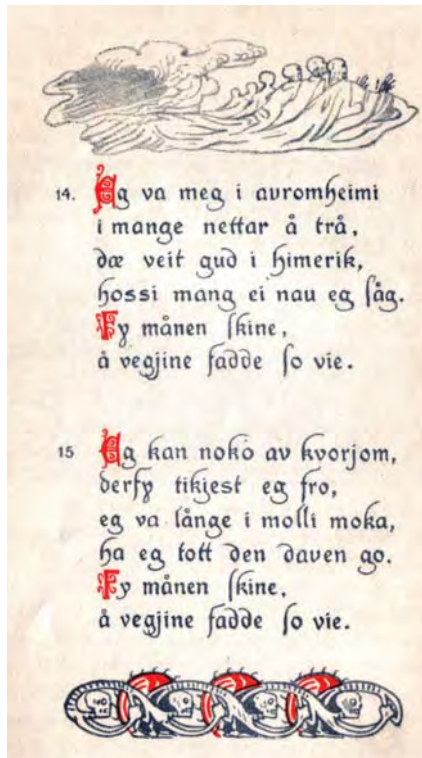 14. Eg va meg i auromheimi
i mange nettar å trå,
dæ veit gud i himerik,
hossi mang ei nau eg såg.
Fy månen skine,
å vegjine fadde so vie.
15 Eg kan noko av kvorjom,
derfy tikjest eg fro,
eg va långe i molli moka,
ha eg tott den daven go.
Fy månen skine,
å vegjine fadde so vie.